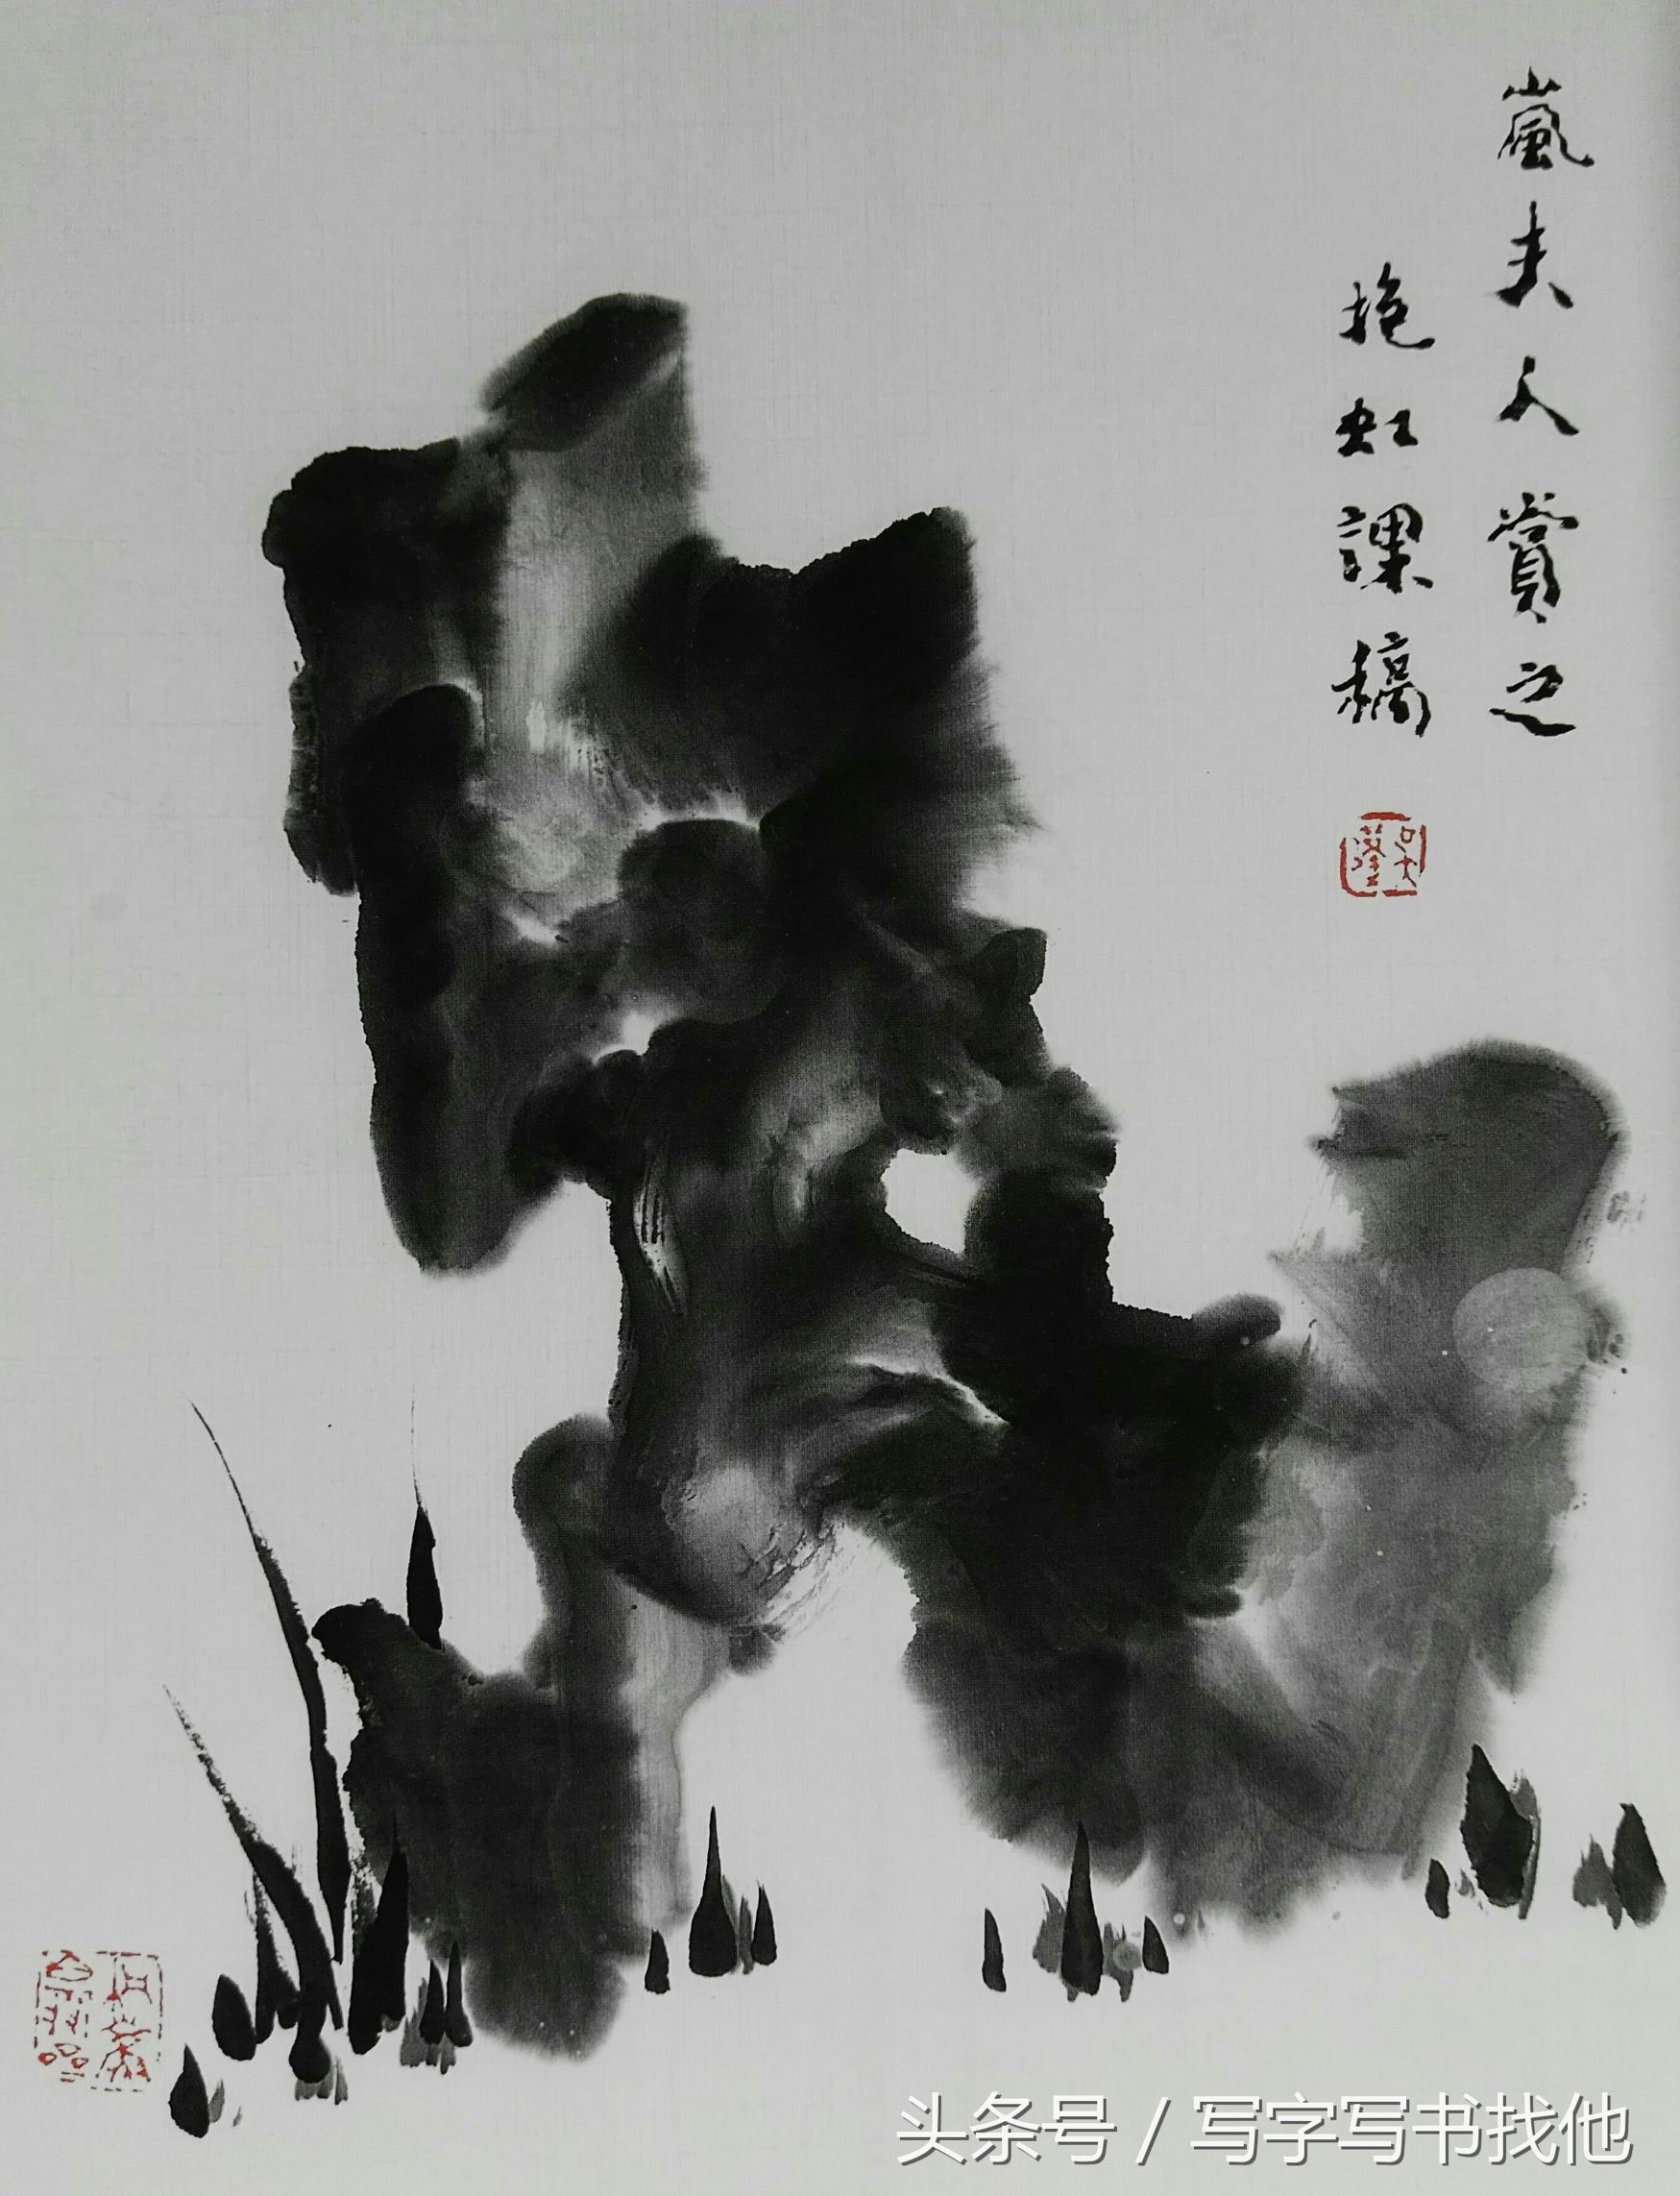 嵐夫人賞之
抱虹課稿
头条号 / 写字写书找他